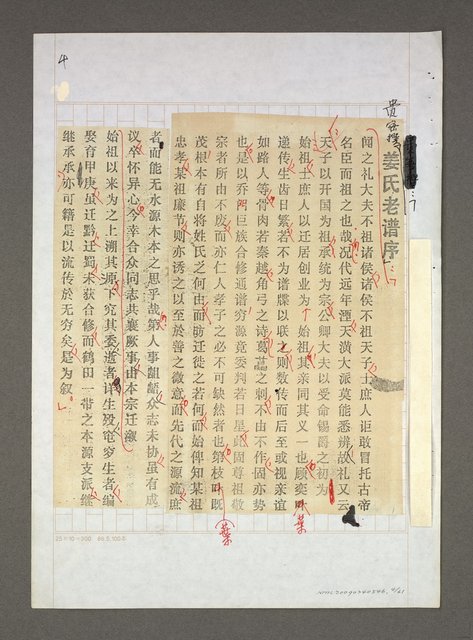 4
贵台撰
姜氏老谱序
闻之礼大夫不祖诸侯诸侯不祖天子士庶人讵敢冒托古帝
名臣而祖之也哉况代远年湮天潢大派莫能悉辨故礼又云
天子以开国为祖承统为宗公卿大夫以受命锡爵之初为
始祖士庶人以迁居创业为个始祖其亲同其义一也顾奕叶
递传生齿日繁若不为谱牒以联之则数传而后至或视亲谊
如路人等骨肉若秦越角弓之诗葛藟之刺不由不作固亦势
也是以乔木巨族合修通谱穷源竟委判若日星此固尊祖敬
宗者所由不废而亦仁人孝子之必不可缺然者也第枝叶既
茂根本有自将姓氏之何由而昉迁徙之若何而始俾知某祖
忠孝某祖廉节则亦诱之以至於善之微意而先代之源流庶
者而能无水源木本之思乎哉第人事龃龉众志未协虽有成
议卒怀异心今幸合众同志共襄厥事由本宗迁溆
始祖以来为之上溯其原下究其委逝者详生殁窀穸生者编
娶育甲庚虽迁黔迁蜀未获合修而鹤田一带之本源支派继
继承承亦可籍是以流传於无穷矣是为叙
叶
葉
葉
25×10=300 86.5.100本